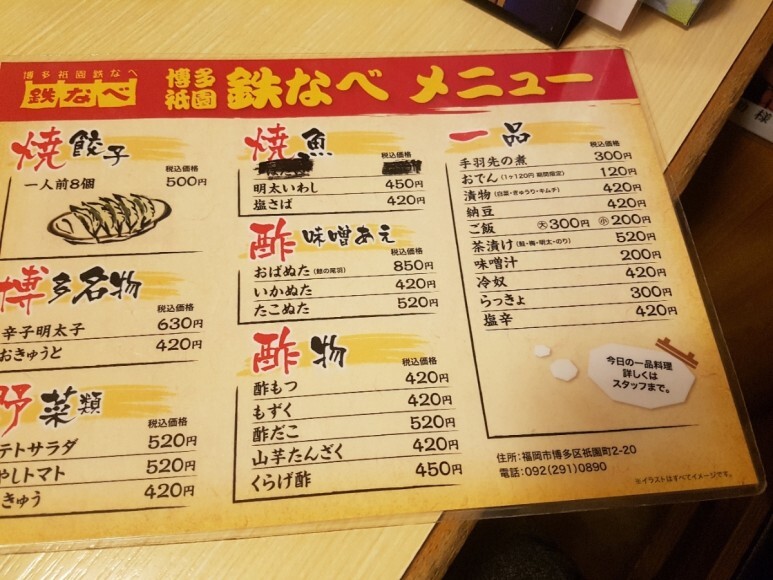 博多祇園鉄なべ
鉄なべ
博多祇園 鉄なべ メニュー
焼餃子
税込価格
一人前8個 500円
博多名物
税込価格
辛子明太子 630円
おきゅうと 420円
野菜類
税込価格
テトサラダ 520円
やしトマト 520円
きゅう 420円
焼魚
税込価格
明太いわし 450円
塩さば 420円
酢味噌あえ
税込価格
おばぬた(鯨の尾羽) 850円
いかぬた 420円
たこぬた 520円
酢物
税込価格
酢もつ 420円
もずく 420円
酢だこ 520円
山芋たんざく 420円
くらげ酢 450円
一品
税込価格
手羽先の煮 300円
おでん(1ヶ120円 期間限定) 120円
漬物(白菜・きゅうり・キムチ) 420円
納豆 420円
ご飯 大300円 小200円
茶漬け(鮭・梅・明太・のり) 520円
味噌汁 200円
冷奴 420円
らっきょ 300円
塩辛 420円
今日の一品料理
詳しくは
スタッフまで。
住所:福岡市博多区祇園町2-20
電話:092(291)0890
※イラストはすべてイメージです。
様